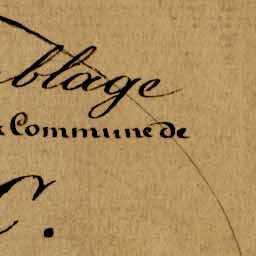 blage
Commune de
C.